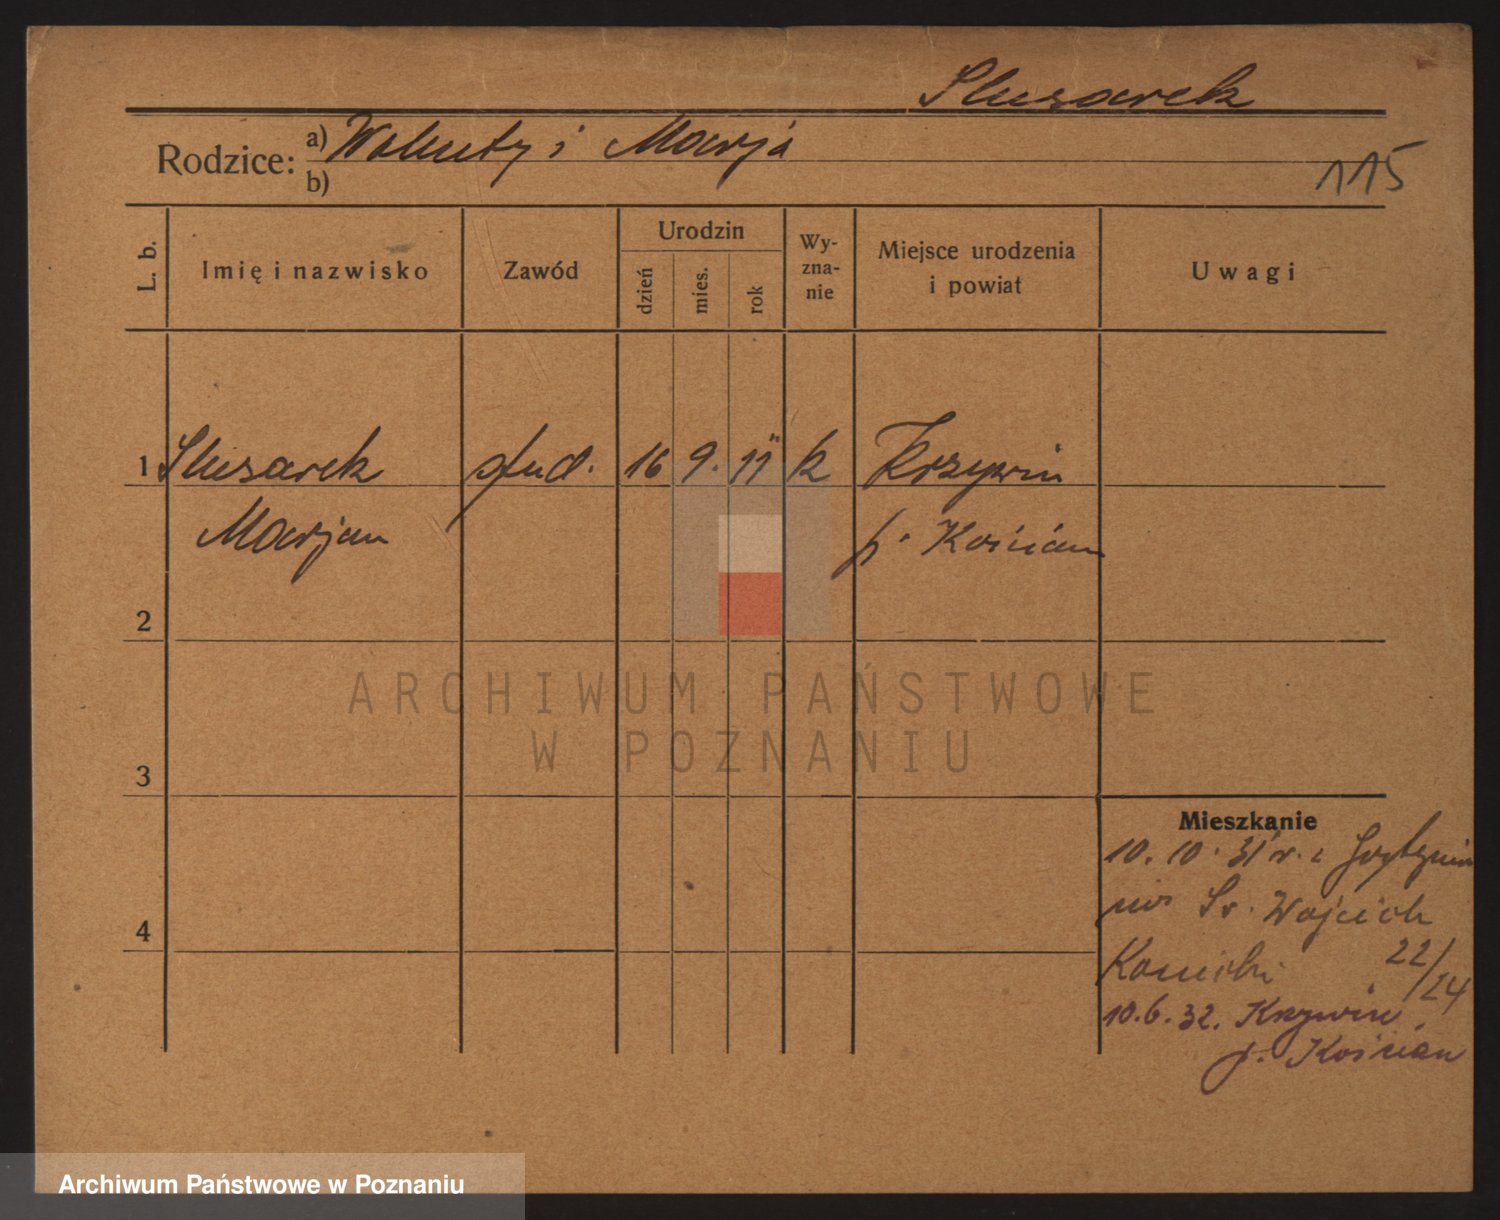 Slusarek
Rodzice: a) Walenty i Marja
b)
115
L. b.
Imię i nazwisko
Zawód
Urodzin
dzień
mies.
rok
Wy-
zna-
nie
Miejsce urodzenia
i powiat
Uwagi
1 Slusarek stud. 16 9. 11 k Krzywin
Marjan p. Kościan
2
3
4
Mieszkanie
10. 10. 31 r. z
Św. Wojciech
22/24
10.6.32. Krzywin
p. Kościan
ARCHIWUM PAŃSTWOWE
W POZNANIU
Archiwum Państwowe w Poznaniu